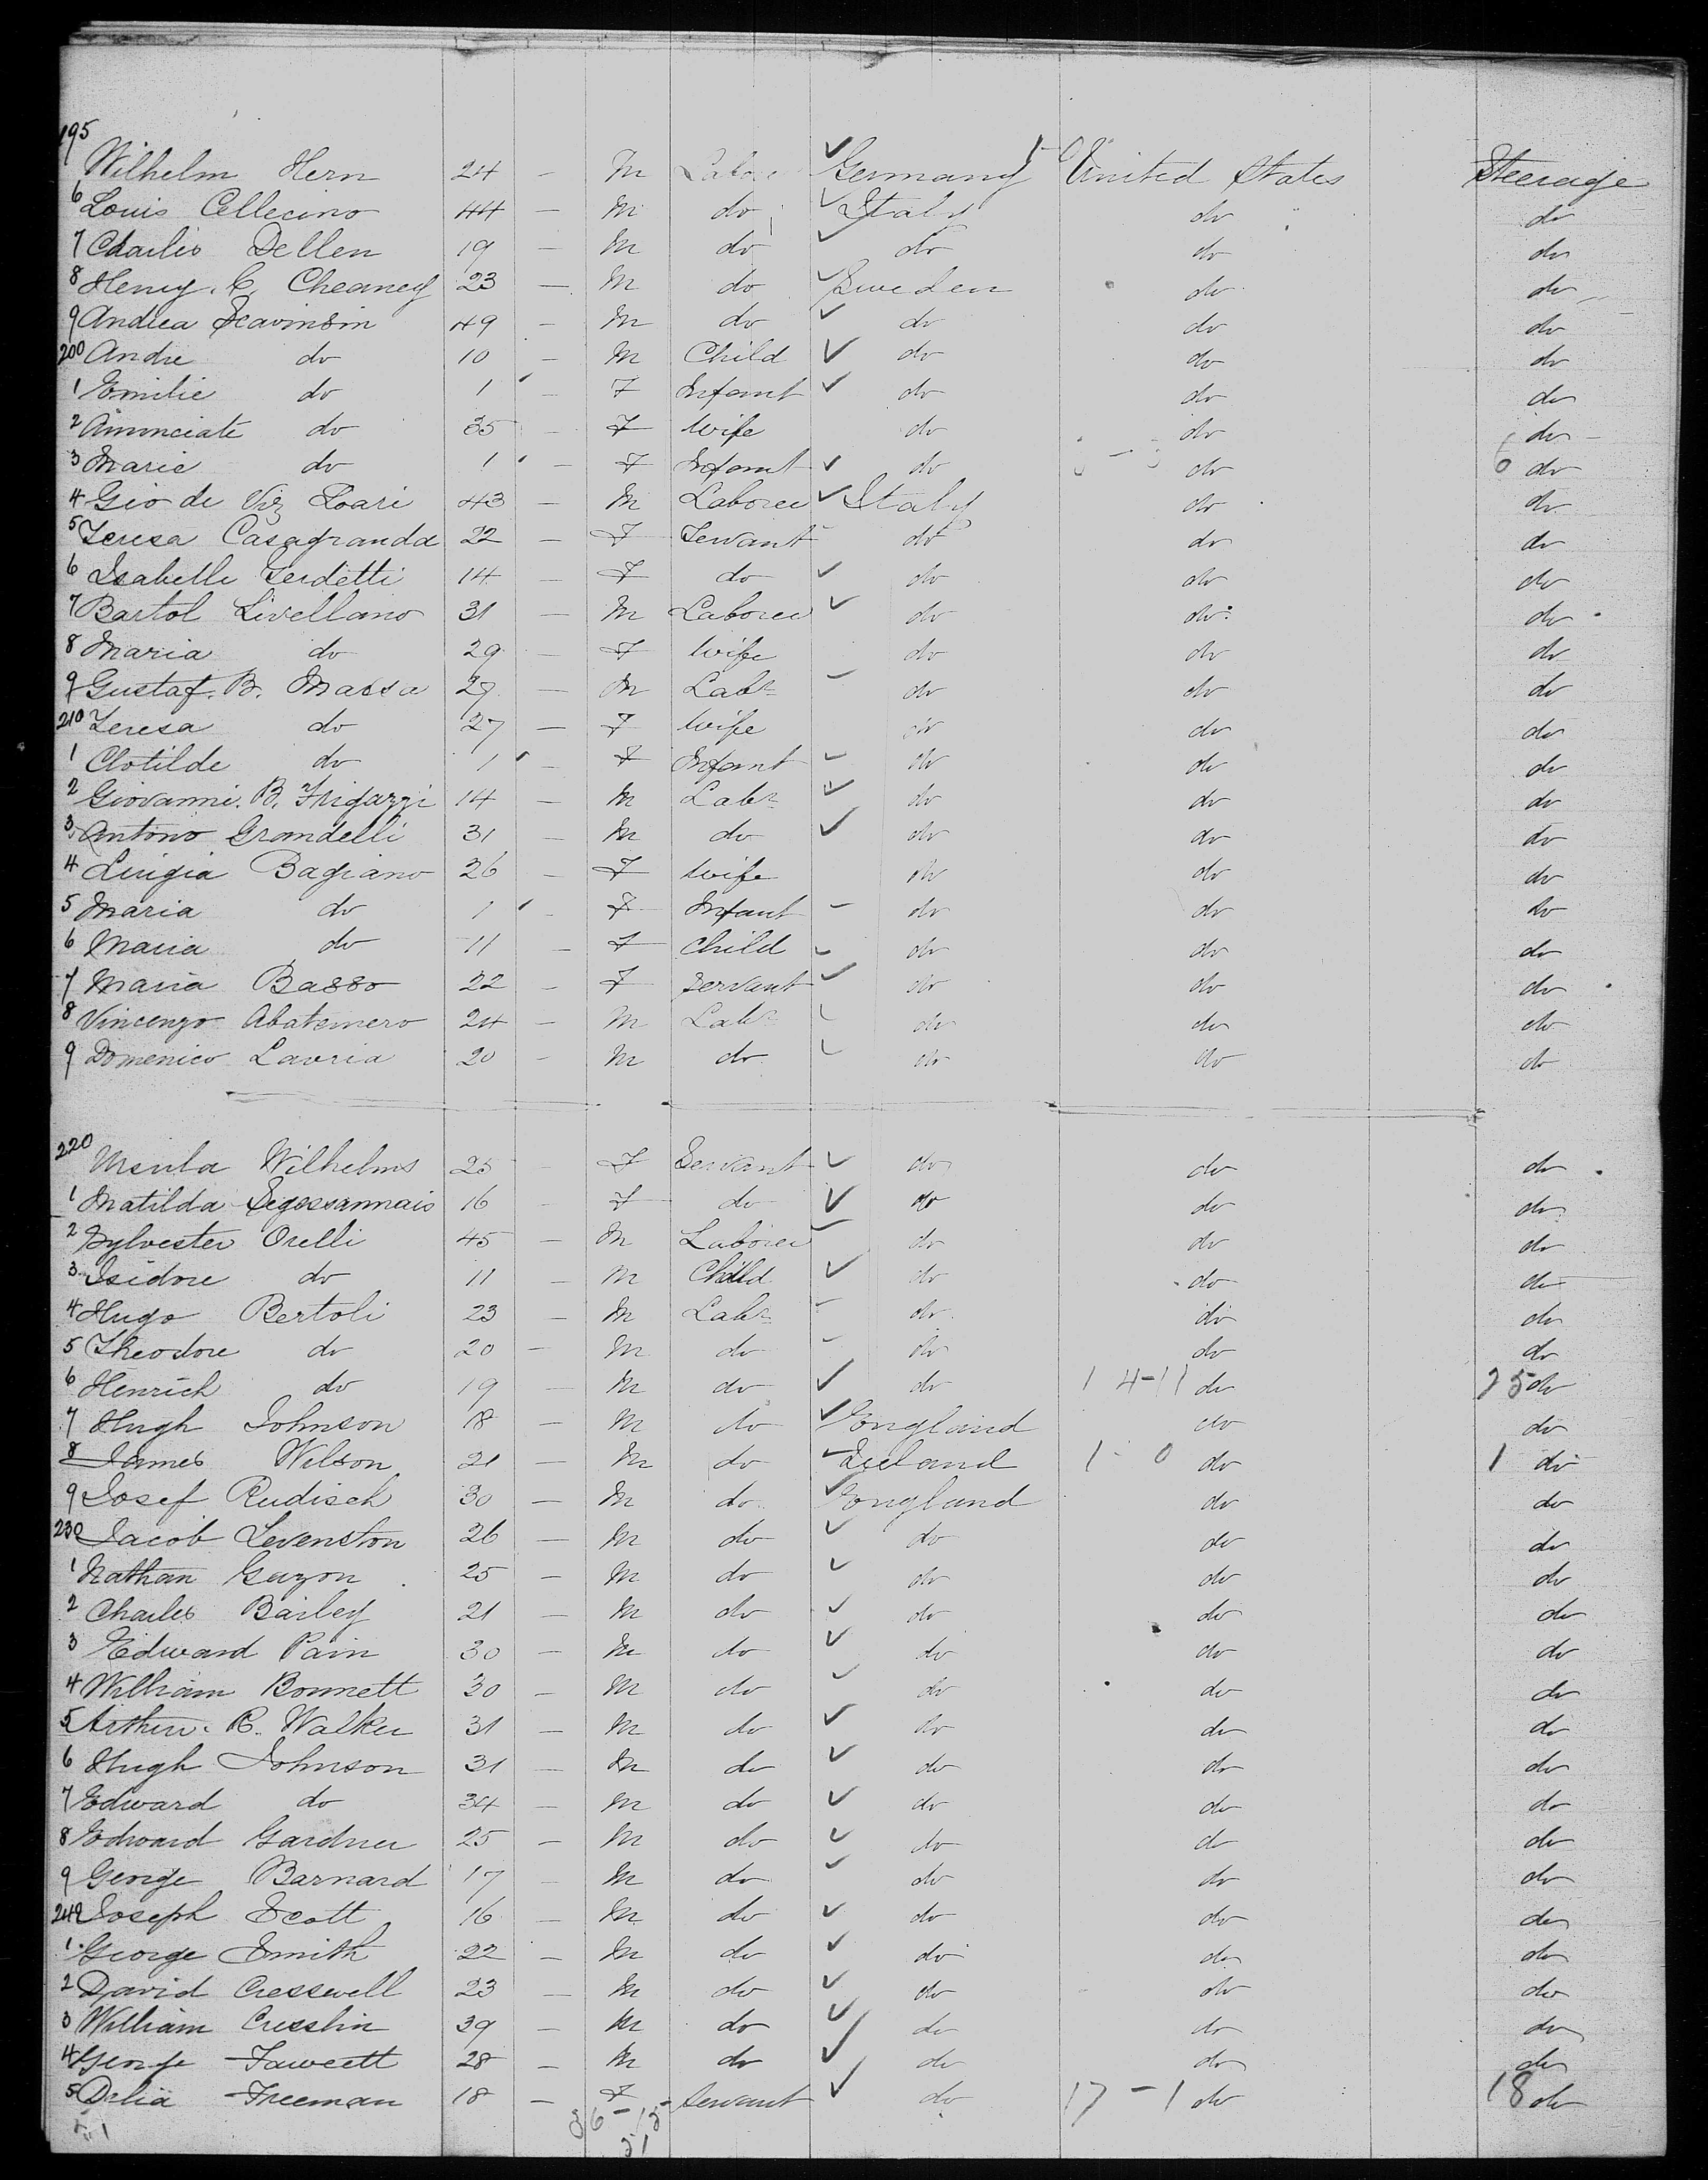 195 Wilhelm Hern 24 — M Labore ✓ Germany 1 0 United States Steerage
6 Louis Cellecino 44 — M do ✓ Italy do do
7 Charlis Dellen 19 — M do ✓ do do do
8 Henry. C. Cheaney 23 — M do ✓ Sweden do do
9 Andrea Scavinsin 49 — M do ✓ do do do
200 Andre do 10 — M Child ✓ do do do
1 Emilie do 1 — F Infant ✓ do do do
2 Annunciate do 35 — F wife do do do
3 Marie do 1 — F Infant ✓ do do 6 do
4 Gio de Viz Loari 43 — M Laborer ✓ Italy do do
5 Teresa Casagranda 22 — F Servant do do do
6 Isabelle Gerdetti 14 — F do ✓ do do do
7 Bartol Livellano 31 — M Laborer ✓ do do do
8 Maria do 29 — F wife do do do
9 Gustaf. B. Massa 29 — M Labr do do do
210 Teresa do 27 — F wife do do do
1 Clotilde do 1 — F Infant do do do
2 Giovanni. B. Frigazzi 14 — M Labr ✓ do do do
3 Antono Grandelli 31 — M do ✓ do do do
4 Luigia Bagiano 26 — F wife do do do
5 Maria do 1 — F Infant do do do
6 Maria do 11 — F Child do do do
7 Maria Basso 22 — F Servant ✓ do do do
8 Vincenzo Abatemero 24 — M Labr do do do
9 Domenico Lavria 20 — M do do do do
220 Wilhelms 25 F Servant ✓ do do do
1 Matilda 16 — F do ✓ do do do
2 Sylvester Orelli 45 — M Laborer do do do
3 Isidore do 11 — M Child ✓ do do do
4 Hugo Bertoli 23 — M Labr do do do
5 Theodore do 20 — M do do do do
6 Henrich do 19 — M do ✓ do 14-11 do 25 do
7 Hugh Johnson 18 — M do ✓ England do do
8 James Wilson 21 — M do Ireland 1 - 0 do 1 do
9 Josef Rudisch 30 — M do ✓ England do do
230 Jacob Levenston 26 — M do ✓ do do do
1 Nathan Guzon 25 — M do ✓ do do do
2 Charles Bailey 21 — M do ✓ do do do
3 Edward Pain 30 — M do ✓ do do do
4 William Bonnett 30 — M do ✓ do do do
5 Arthur. R. Walker 31 — M do ✓ do do do
6 Hugh Johnson 31 — M do ✓ do do do
7 Edward do 34 — M do ✓ do do do
8 Edward Gardner 25 — M do ✓ do do do
9 George Barnard 17 — M do ✓ do do do
240 Joseph Scott 16 — M do ✓ do do do
1 George Smith 22 — M do ✓ do do do
2 David Cresswell 23 — M do ✓ do do do
3 William Cresslin 39 — M do ✓ do do do
4 George Fawcett 28 — M do ✓ do do do
5 Delia Freeman 18 — F Servant ✓ do 17 - 1 do 18 do